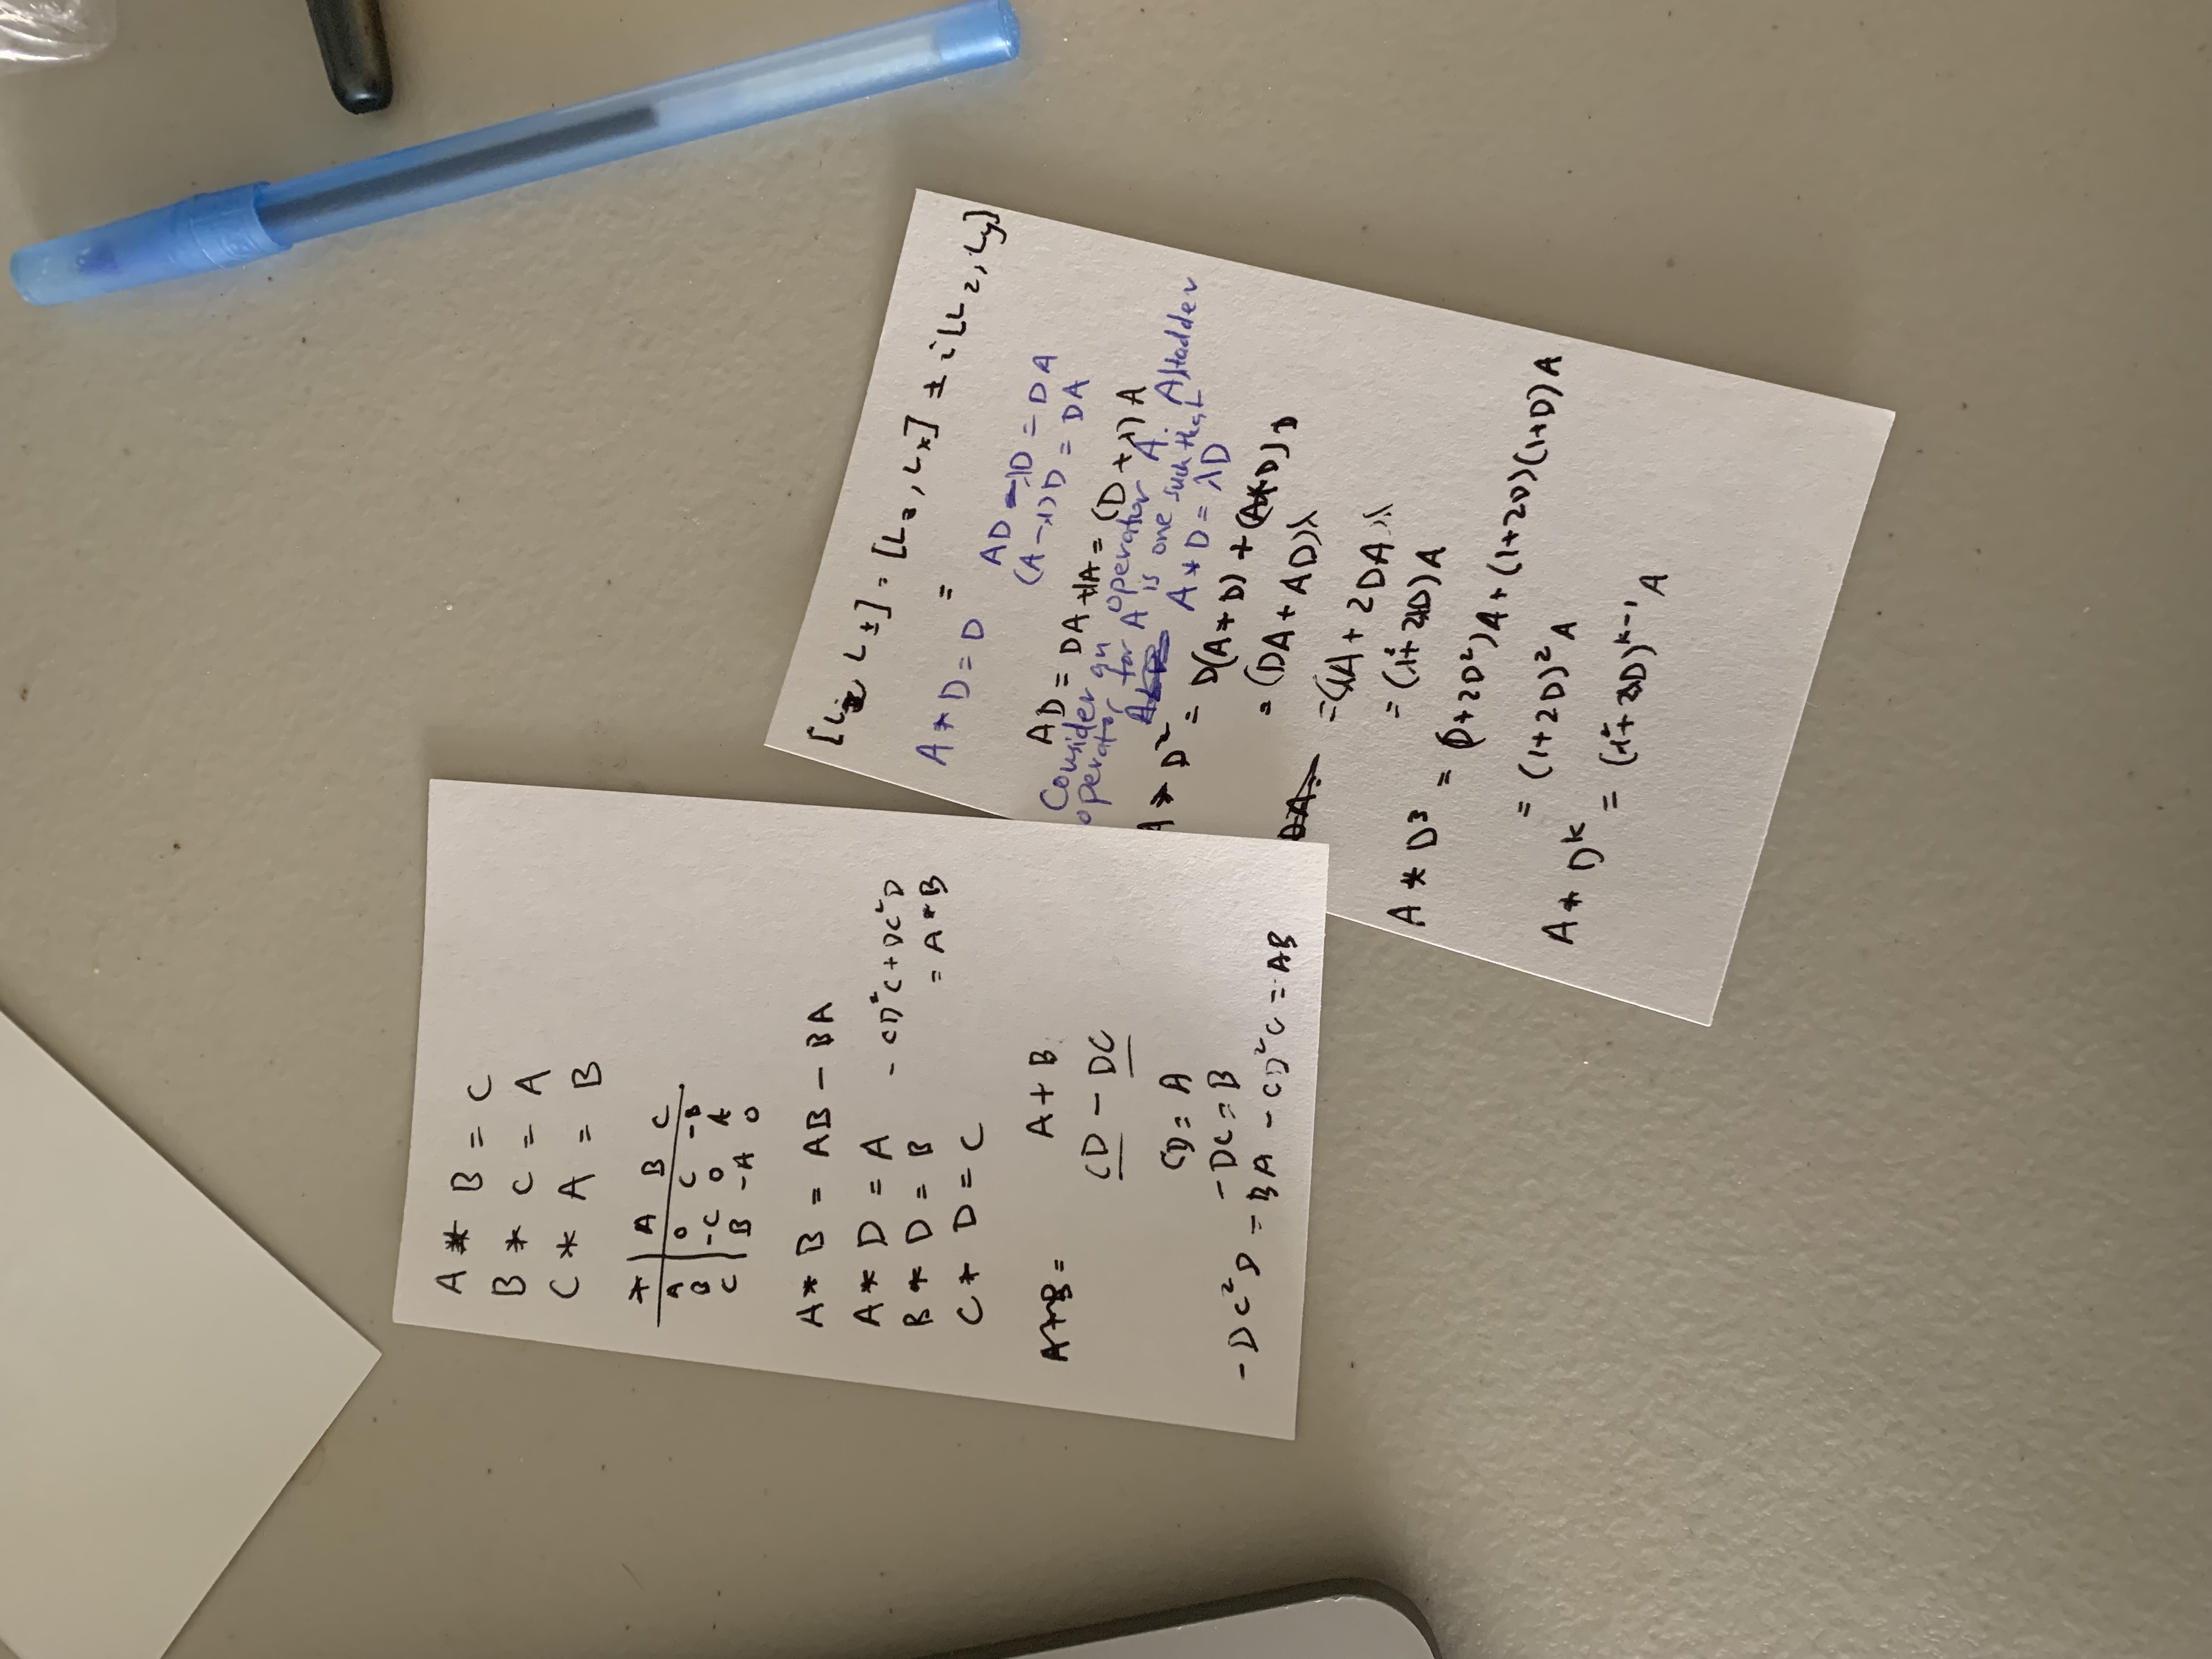 A * B = C
B * C = A
C * A = B
* | A B C
A | 0 C -B
B | -C 0 A
C | B -A 0
A * B = AB - BA
A * D = A
B * D = B
C * D = C
- CD²C + DC²D
= A * B
A+B =
A + B
CD - DC
CD = A
-DC = B
-DC²D = BA -CD²C = AB
[Lz, L±] = [Lz, Lx] ± i[Lz, Ly]
=
A * D = D
AD - λD = DA
(A - λ)D = DA
AD = DA + λA = (D + λ) A
Consider an operator A. A ladder
operator for A is one such that
A * D = λD
A * D² = D(A * D) + (A*D) D
= (DA + AD)λ
= (λA + 2DA)λ
DA.
= (λ² + 2λD) A
A * D³ = (D + 2D²)A + (1+2D)(1+D) A
= (1+2D)² A
A * Dᵏ = (λ² + 2λD)ᵏ⁻¹ A